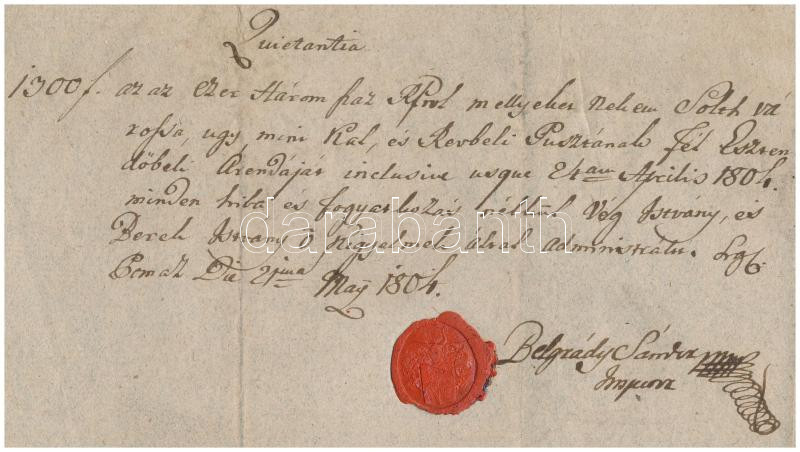 Quietantia
1300 f. az az ezer Három száz Rfrol mellyeket nekem Solth vá
rossa, ugy mint Kal, és Revbeli Pusztának fél Eszten
dőbeli Árendáját inclusive usque 24am Aprilis 1804.
minden hiba és fogyatkozás nélkül Vég Istvány, és
Derek Istvany ő kigyelmek által administralt.
Pomaz Die 21ma Maÿ 1804.
Belgrády Sándor mp
Inspector
darabanth